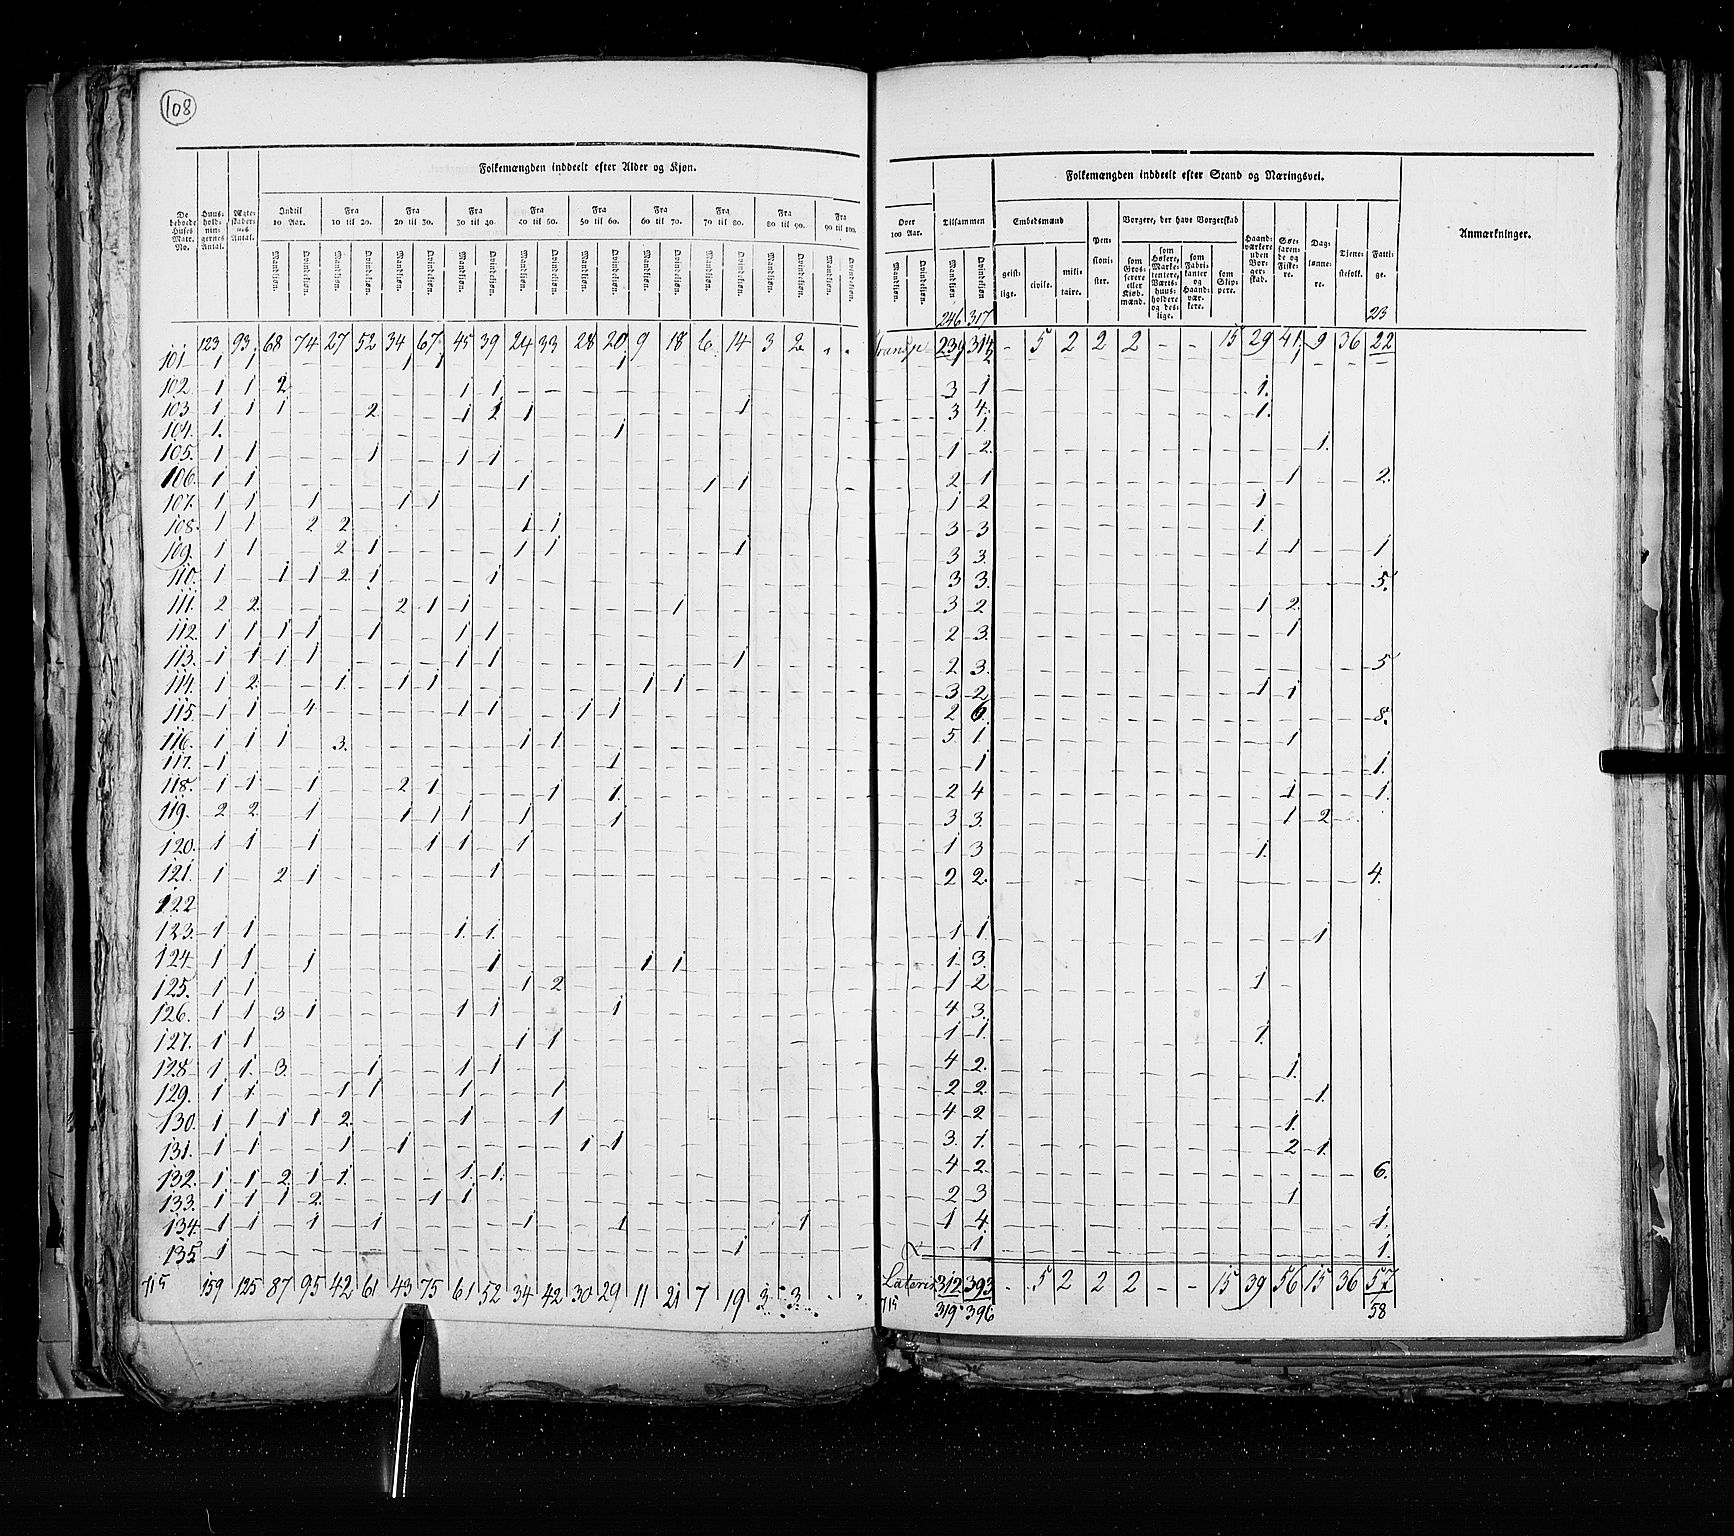 108
Folkemængden inddeelt efter Alder og Kjøn.
De beboede Huses Matr. No.
Huusholdningernes Antal.
Ægteskabernes Antal.
Indtil 10 Aar.
Fra 10 til 20.
Fra 20 til 30.
Fra 30 til 40.
Fra 40 til 50.
Fra 50 til 60.
Fra 60 til 70.
Fra 70 til 80.
Fra 80 til 90.
Fra 90 til 100.
Mandkjøn. Qvindekjøn. Mandkjøn. Qvindekjøn. Mandkjøn. Qvindekjøn. Mandkjøn. Qvindekjøn. Mandkjøn. Qvindekjøn. Mandkjøn. Qvindekjøn. Mandkjøn. Qvindekjøn. Mandkjøn. Qvindekjøn. Mandkjøn. Qvindekjøn. Mandkjøn. Qvindekjøn.
123 93 68 74 27 52 34 67 45 39 24 33 28 20 9 18 6 14 3 2 . .
101 1 1 1 1 1
102. 1 1 2 1 1
103. 1 1 1 2 1 2 1 1
104. 1. 1
105. 1 1 1 1 1
106. 1 1 1 1 1
107. 1 1 1 1 1
108. 1 1 2 2 1 1
109. 1 1 2 1 1 1 1
110. 1 1 1 2 1 1
111. 2 2 2 1 1 1
112. 1 1 1 1 1 1 1
113. 1 1 1 1 1 1 1
114. 1 2 1 1 1 1 1
115. 1 1 4 1 1 1 1
116. 1 1 1 3. 1 1
117. 1 1
118. 1 1 1 2 1 1 1
119. 2 2 1 1 1 1 1 1
120. 1 1 1 1 1 1
121. 1 2 1 1
122
123. 1 1 1 1
124 1 1 1 1 1 1
125. 1 1 1 2
126. 1 1 3 1 1 1 1
127. 1 1 1 1
128 1 1 3 1 1 1
129. 1 1 1 1 1 1
130. 1 1 1 1 2 1 1
131. 1 1 1 1 1 1
132. 1 1 2 1 1 1 1
133. 1 1 1 2 1 1
134 1 1 1 1 1 1 1
135 1 1
715 159 125 87 95 42 61 43 75 61 52 34 42 30 29 11 21 7 19 3 3 . .
Folkemængden inddeelt efter Stand og Næringsvei.
Over 100 Aar.
Tilsammen
Embedsmænd
Pensionister.
Borgere, der have Borgerskab
Haandværkere uden Borgerskab.
Søefarende og Fiskere.
Daglønnere.
Tjenestefolk.
Fattige.
Anmærkninger.
Mandkjøn. Qvindekjøn. Mandkjøn. Qvindekjøn
geistlige. civile. militaire.
som Grosserere eller Kjøbmænd.
som Høkere, Marketentere, Værtshuusholdere og deslige.
som Fabrikanter og Haandværkere.
som Skippere.
246 317 23
Transp. 239 314 - 5 2 2 2 - - 15 29 41 9 36 22
1 2 1
3 1 1.
3 4 1.
1.
1 2 1.
2 1 1 2.
1 2 1
3 3 1.
3 3. 1 1 1
3 3. 5.
3 2 1 2
2 3. 1
2 3. 5
3 2 1 1
2 6. 8.
5 1 1
1 1.
2 4 1 1.
3 3. 1 2
1 3 1.
2 2. 4.
1 1. 1
1 3.
1 2 1
4 3.
1 1 1.
4 2. 1.
2 2. 1.
4 2 1.
3. 1. 2 1
4 2 6.
2 3 1
1 4 1.
1 1.
Lateris 312 393 - 5 2 2 2 - - 15 39 56 15 36 57
715 319 396 58